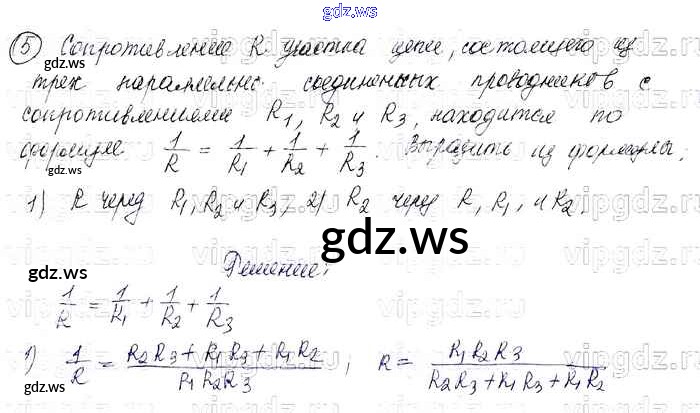 gdz.ws
5 Сопротивление R участка цепи, состоящего из
трех параллельно соединенных проводников с
сопротивлениями R1, R2 и R3, находится по
формуле 1/R = 1/R1 + 1/R2 + 1/R3. Выразить из формулы:
1) R через R1, R2 и R3 2) R2 через R, R1, и R2.
gdz.ws
Решение:
1/R = 1/R1 + 1/R2 + 1/R3
1) 1/R = (R2R3 + R1R3 + R1R2)/(R1R2R3), R = (R1R2R3)/(R2R3 + R1R3 + R1R2)
gdz.ws